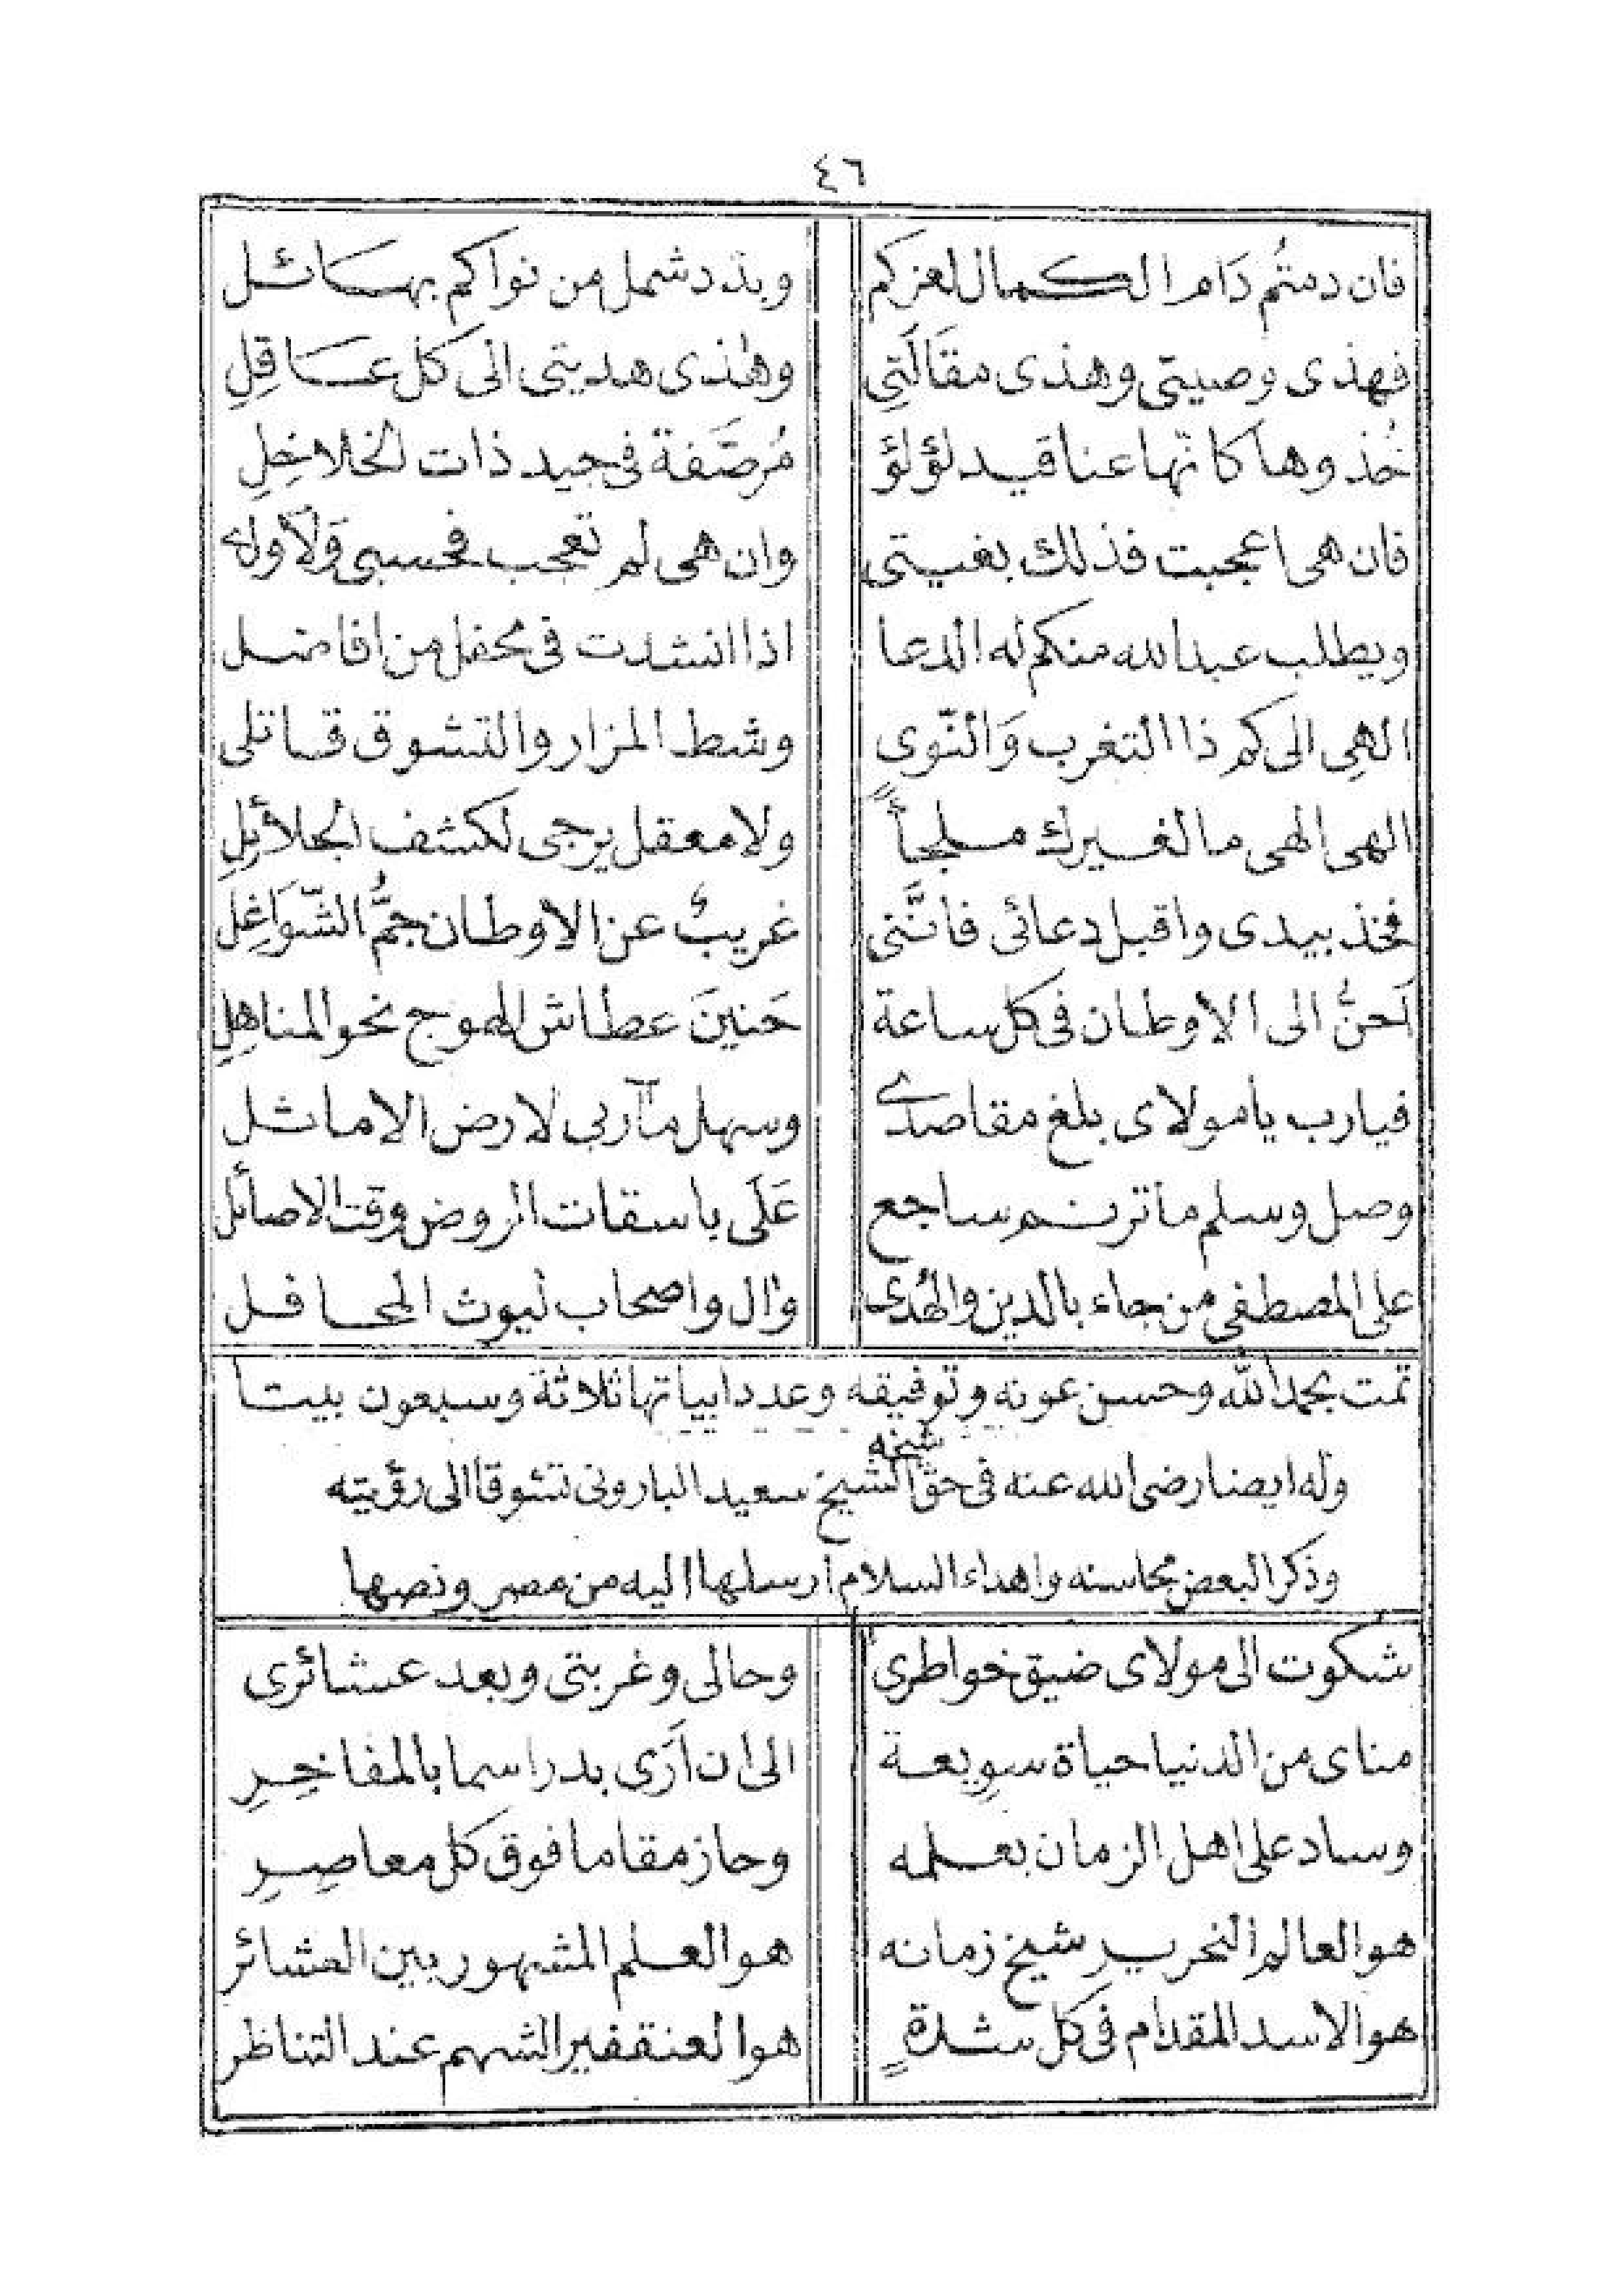 ٤٦
فان دمتُم دَام الكمال لعزكم وبدد شمل من نواكم بهائل
فهذى وصيتى وهذى مقَالَتِي وهٰذى هديتى الى كل عاقِلِ
خُذوها كانّها عناقيد لؤلؤ مُرصَّفة فى جيد ذات الخلاخِلِ
فان هى اعجبت فذلك بغيتى وان هى لم تعجب فحسبى وَلَا وله
ويطلب عبدالله منكم له الدعا اذا انشدت فى محفل من افاضل
الهِى الى كم ذا التغرب وَالنّوى وشط المزار والتشوق قاتلى
الهى الهى ما لغيرك ملجأً ولا معقل يرجى لكشف الجلائِلِ
فخذ بيدى واقبل دعائى فانَّنى غريبٌ عن الاوطان جمُّ الشّوَاغِلِ
اَحنُّ الى الاوطان فى كل ساعة حَنينَ عطاش الهوج نحو المناهِلِ
فيارب يا مولاى بلغ مقاصدى وسهل مآربى لارض الاماثل
وصل وسلم ما ترنم ساجع عَلَى باسقات الروض وقت الاصائل
على المصطفى من جاء بالدين والهُدى وال واصحاب ليوث المحافل
تمت بحمد الله وحسن عونه وتوفيقه وعدد ابياتها ثلاثة وسبعون بيتا
شيخه
وله ايضا رضى الله عنه فى حق الشيخ سعيد البارونى تشوقا الى رؤيته
وذكر البعض محاسنه واهداء السلام ارسلها اليه من مصر ونصها
شكوت الى مولاى ضيق خواطرى وحالى وغربتى وبعد عشائرى
مناى من الدنيا حياة سويعة الى ان اَرَى بدرا سما بالمفاخِرِ
وساد على اهل الزمان بعلمه وحاز مقاما فوق كل معاصِرِ
هو العالم النحرير شيخ زمانه هو العلم المشهور بين العشائر
هو الاسد المقدام فى كل شدةٍ هو العنقفير الشهم عند التناظر